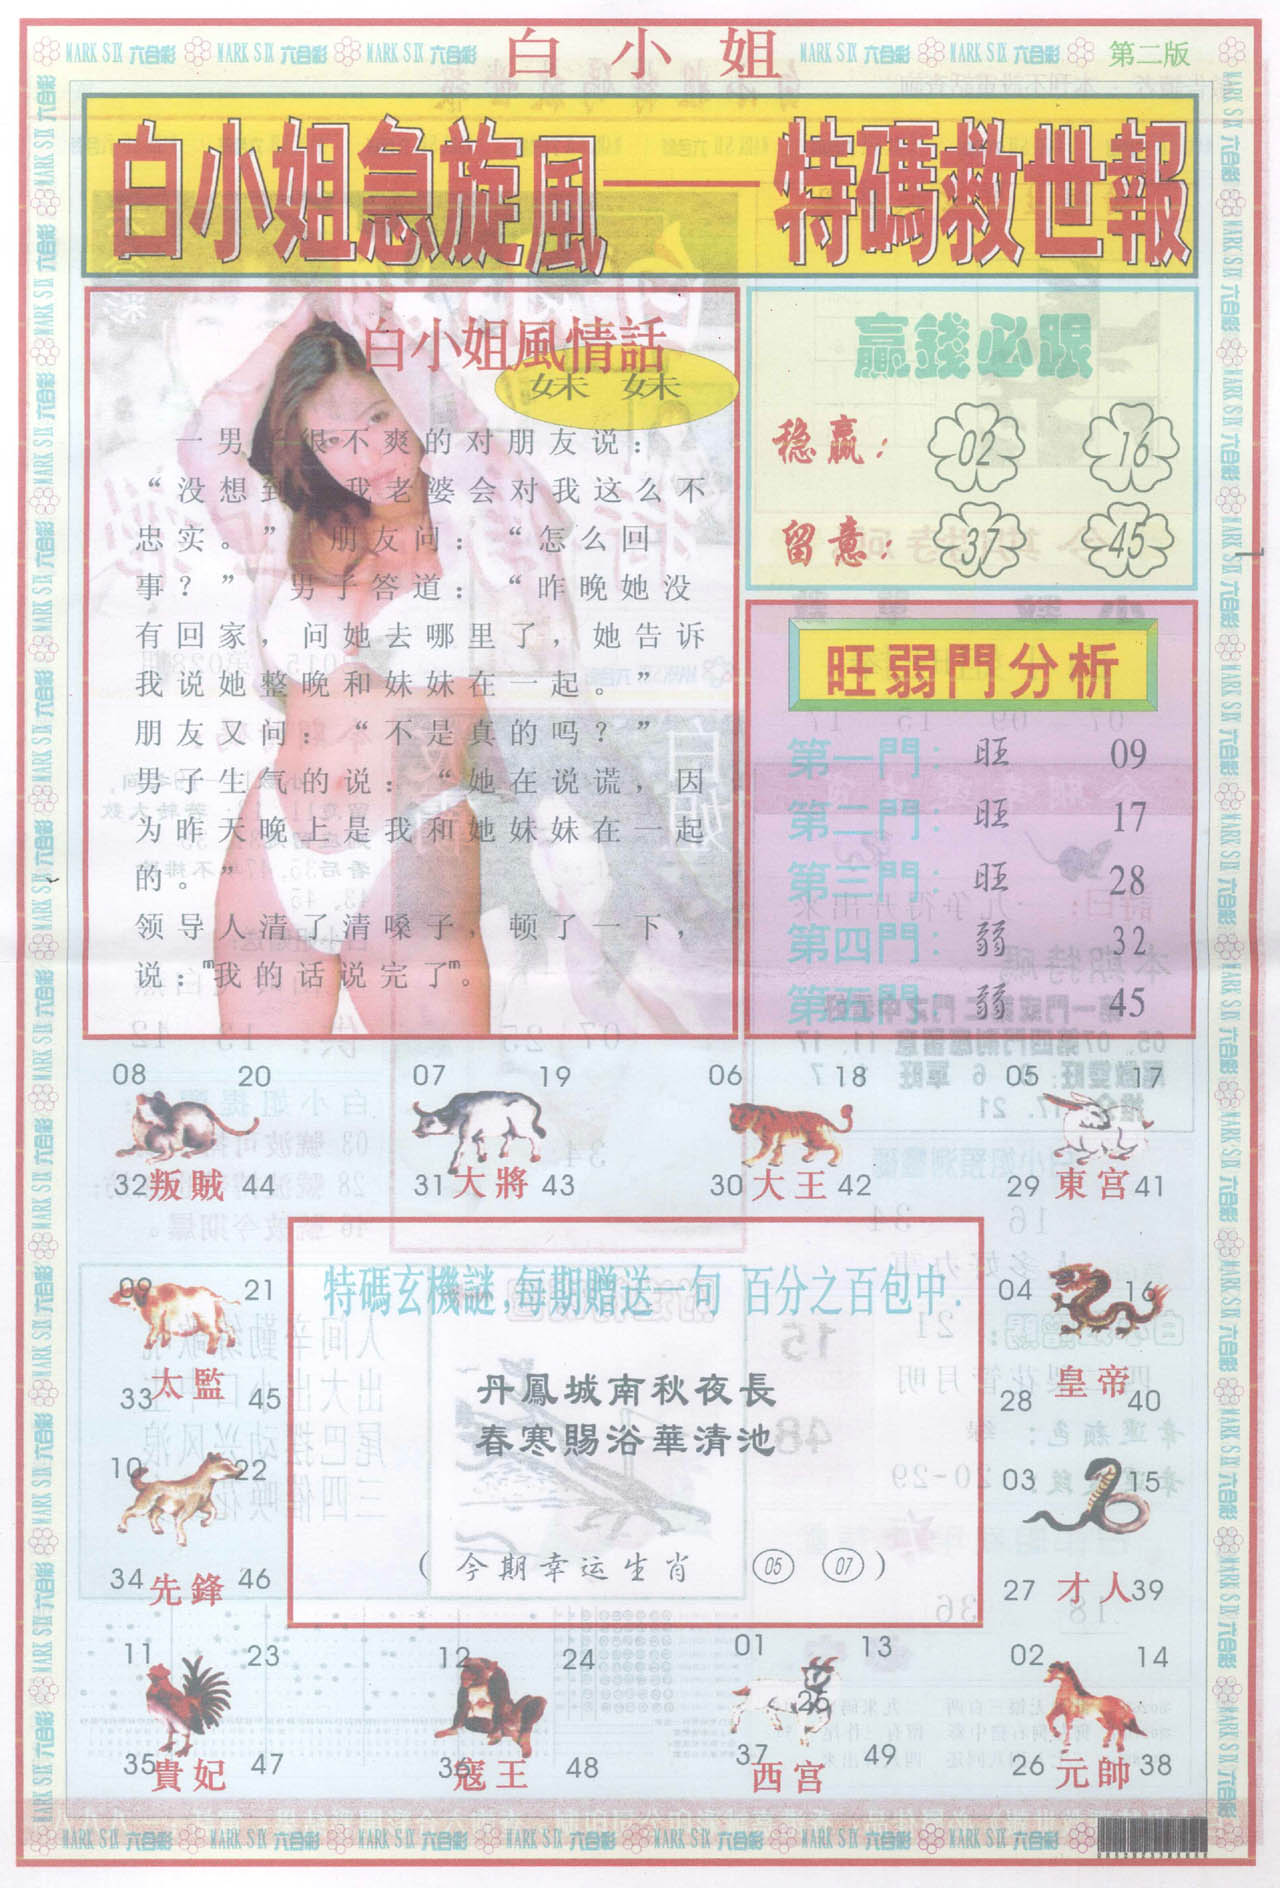 MARK SIX 六合彩 MARK SIX 六合彩 MARK SIX 六合彩 白小姐 MARK SIX 六合彩 MARK SIX 六合彩 第二版
白小姐急旋風——特碼救世報
白小姐風情話
妹妹
一男子很不爽的对朋友说：
“没想到，我老婆会对我这么不
忠实。” 朋友问：“怎么回
事？” 男子答道：“昨晚她没
有回家，问她去哪里了，她告诉
我说她整晚和妹妹在一起。”
朋友又问：“不是真的吗？”
男子生气的说：“她在说谎，因
为昨天晚上是我和她妹妹在一起
的。”
领导人清了清嗓子，顿了一下，
说："我的话说完了"。
贏錢必跟
稳赢： 02 16
留意： 37 45
旺弱門分析
第一門： 旺 09
第二門： 旺 17
第三門： 旺 28
第四門： 弱 32
第五門： 弱 45
08 20
32 叛賊 44
07 19
31 大將 43
06 18
30 大王 42
05 17
29 東宮 41
09 21
33 太監 45
特碼玄機謎,每期贈送一句 百分之百包中.
丹鳳城南秋夜長
春寒賜浴華清池
（今期幸运生肖 05 07）
04 16
皇帝
28 40
10 22
34 先鋒 46
03 15
27 才人 39
11 23
35 貴妃 47
12 24
36 寇王 48
01 13
25
37 西宮 49
02 14
26 元帥 38
MARK SIX 六合彩 MARK SIX 六合彩 MARK SIX 六合彩 MARK SIX 六合彩 MARK SIX 六合彩 MARK SIX 六合彩 MARK SIX 六合彩